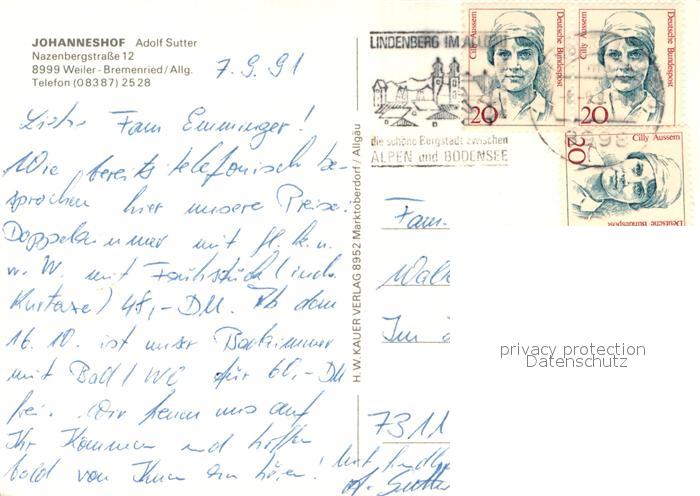 JOHANNESHOF Adolf Sutter
Nazenbergstraße 12
8999 Weiler-Bremenried/Allg.
Telefon (08387) 2528
7.9.91
Liebe Fam Emminger!
Wie bereits telefonisch be-
sprochen hier unsere Preise.
Doppelzimmer mit fl. k. u.
w. W. mit Frühstück (incl.
Kurtaxe) 48,- DM. Ab dem
16.10. ist unser Badzimmer
mit Bad/WC für 60,- DM
frei. Wir freuen uns auf
Ihr Kommen und hoffen
bald von Ihnen zu hören!
Mit freundl
A. Sutter
H.W. KAUER VERLAG 8952 Marktoberdorf / Allgäu
LINDENBERG IM ALLGÄU
die schöne Bergstadt zwischen
ALPEN und BODENSEE
8999
Cilly Aussem
Deutsche Bundespost
20
Cilly Aussem
Deutsche Bundespost
20
Cilly Aussem
Deutsche Bundespost
20
Fam.
Im
7311
privacy protection
Datenschutz